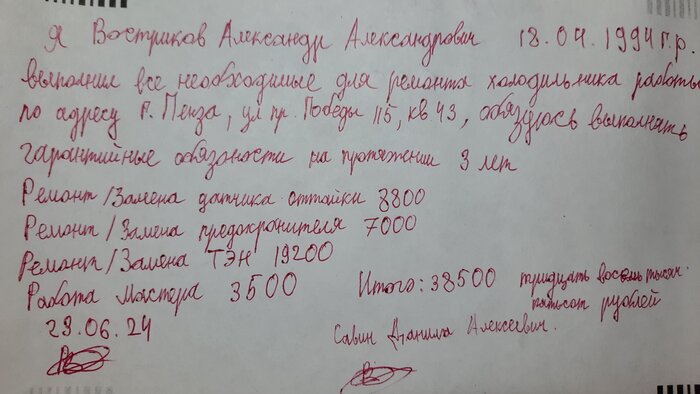 Я Востриков Александр Александрович 18.04.1994г.р.
выполнил все необходимые для ремонта холодильника работы
по адресу г. Пенза, ул пр. Победы 115, кв 43, обязуюсь выполнять
гарантийные обязности на протяжении 3 лет
Ремонт/Замена датчика оттайки 8800
Ремонт/Замена предохронителя 7000
Ремонт/Замена ТЭН 19200
Работа Мастера 3500 Итого: 38500 тридцать восемь тысяч
пятьсот рублей
29.06.24 Савин Данила Алексеевич.